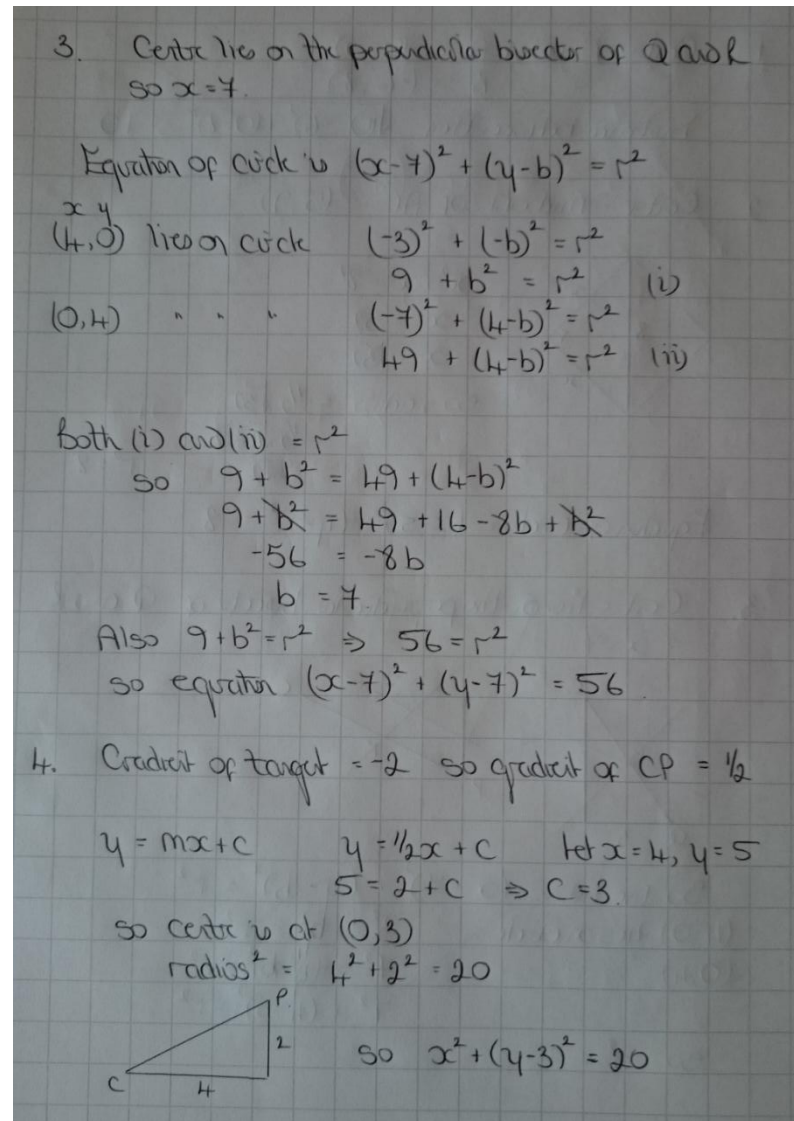 3. Centre lies on the perpendicular bisector of Q and R
so x=7.
Equation of circle is (x-7)² + (y-b)² = r²
x y
(4,0) lies on circle (-3)² + (-b)² = r²
9 + b² = r² (i)
(0,4) " " " (-7)² + (4-b)² = r²
49 + (4-b)² = r² (ii)
Both (i) and (ii) = r²
so 9 + b² = 49 + (4-b)²
9 + b² = 49 + 16 - 8b + b²
-56 = -8b
b = 7
Also 9+b²=r² ⇒ 56=r²
so equation (x-7)² + (y-7)² = 56.
4. Gradient of tangent = -2 so gradient of CP = ½
y = mx+c y = ½x + c let x=4, y=5
5 = 2+c ⇒ c=3.
so centre is at (0,3)
radius² = 4² + 2² = 20
P.
2 so x² + (y-3)² = 20
C 4